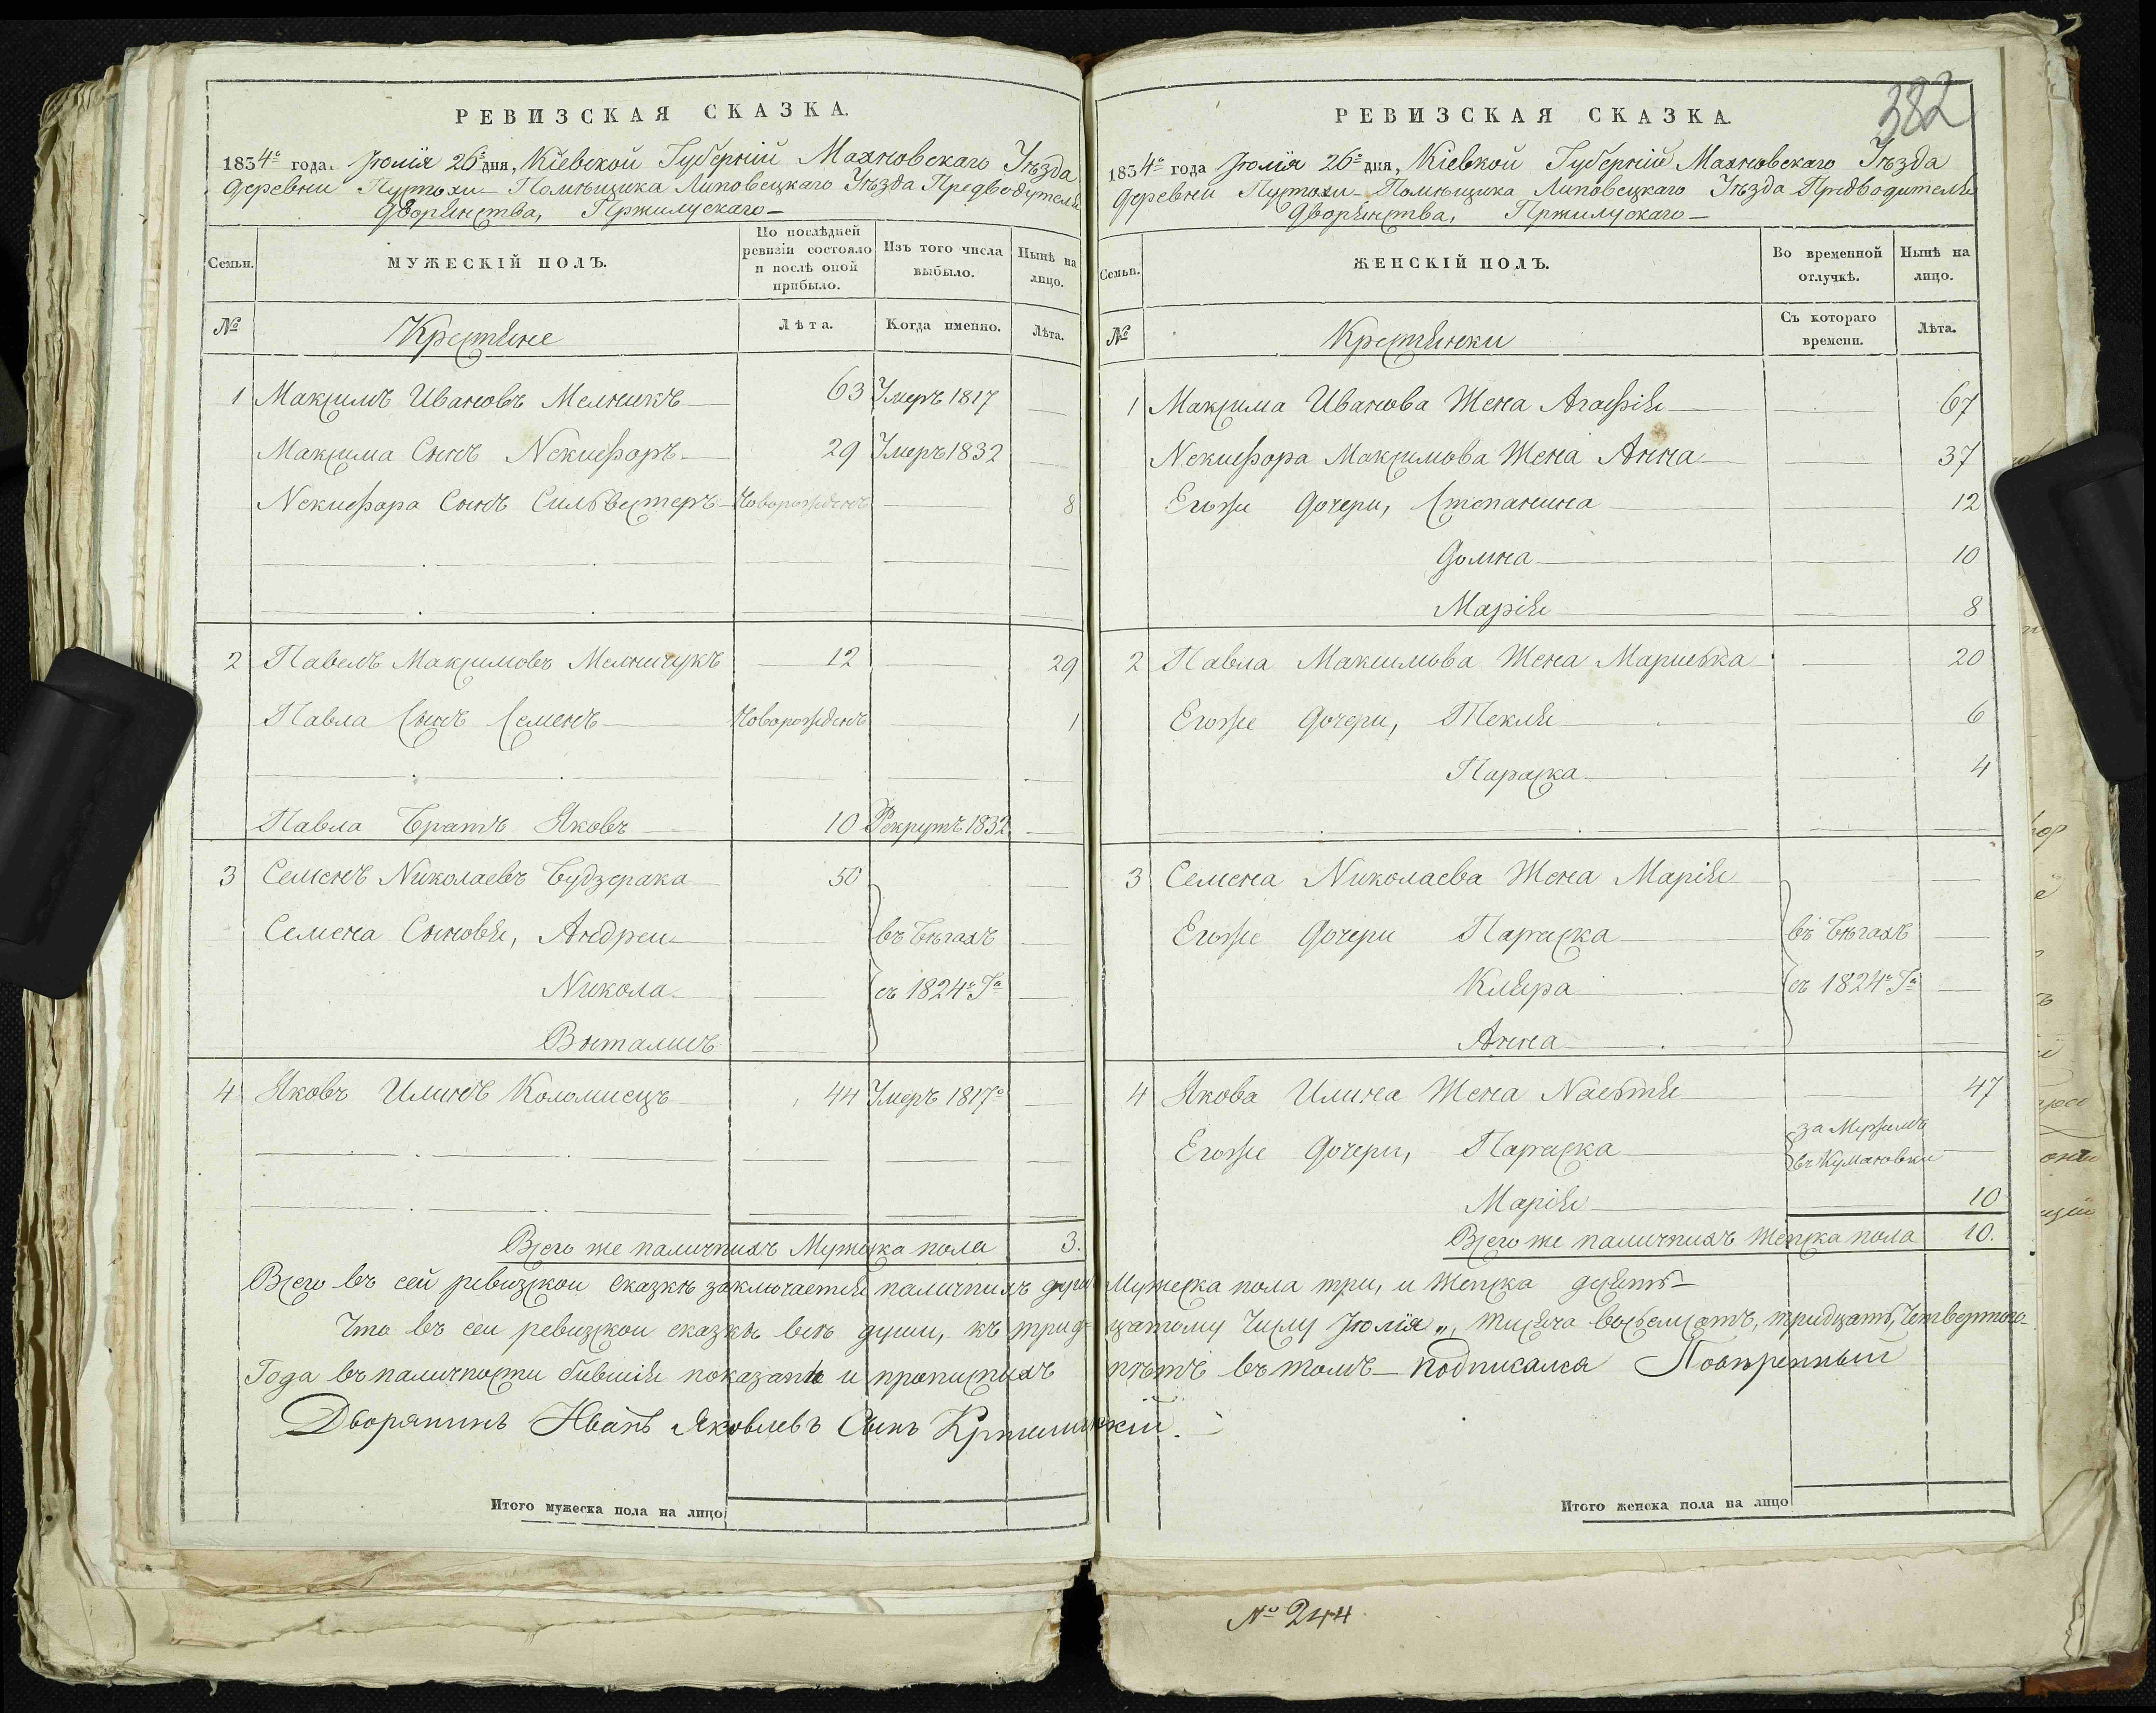 РЕВИЗСКАЯ СКАЗКА.
1834го года. Іюлія 26го дня, Кіевской Губерніи Махновскаго Уѣзда
деревни Пустохи Помѣщика Липовецкаго Уѣзда Предводителя
Дворянства, Пржилускаго
Семьи.
МУЖЕСКІЙ ПОЛЪ.
По послѣдней ревизіи состояло и послѣ оной прибыло.
Изъ того числа выбыло.
Нынѣ на лицо.
№
Крестяне
Лѣта.
Когда именно.
Лѣта.
1 Максимъ Ивановъ Мелникъ 63 Умеръ 1817
Максима Сынъ Никифоръ 29 Умеръ 1832
Никифора Сынъ Сильвестеръ Новорожденъ 8
2 Павелъ Максимовъ Мелничукъ 12 29
Павла Сынъ Семенъ Новорожденъ 1
Павла Братъ Яковъ 10 Рекрутъ 1832
3 Семенъ Николаевъ Будзерака 50
Семена Сыновя, Андреи въ Бѣгахъ
Никола съ 1824го Га
Виталисъ
4 Яковъ Илинъ Коломиецъ 44 Умеръ 1817го
Всего же наличныхъ Мужеска пола 3.
РЕВИЗСКАЯ СКАЗКА.
382
1834го года Іюлія 26го дня, Кіевкой Губерніи Махновскаго Уѣзда
деревни Пустохи Помѣщика Липовецкаго Уѣзда Предводителя
Дворянства, Пржилускаго
Семьи.
ЖЕНСКІЙ ПОЛЪ.
Во временной отлучкѣ.
Нынѣ на лицо.
№
Крестянки
Съ котораго времени.
Лѣта.
1 Максима Иванова Жена Агафія 67
Никифора Максимова Жена Анна 37
Егоже дочери, Степанина 12
Домна 10
Марія 8
2 Павла Максимова Жена Мариська 20
Егоже дочери, Текля 6
Параска 4
3 Семена Николаева Жена Марія
Егоже дочери Параска въ Бѣгахъ
Кляра съ 1824го Га
Анна
4 Якова Илина Жена Настя 47
Егоже дочери, Параска за Мужемъ
въ Кумановки
Марія 10
Всего же наличныхъ Женска пола 10.
Всего въ сей ревизской сказкѣ заключается наличныхъ душъ Мужеска пола три, и Женска десять
Что въ сеи ревизской сказкѣ всѣ души, къ тридцатому Числу Іюлія, тысяча восемсотъ, тридцать, Четвертого
Года въ наличности бывшія показаны и прописныхъ нѣтъ въ томъ подписался Повѣренный
Дворянинъ Иванъ Яковлевъ Сынъ
Итого мужеска пола на лицо
Итого женска пола на лицо
№ 244